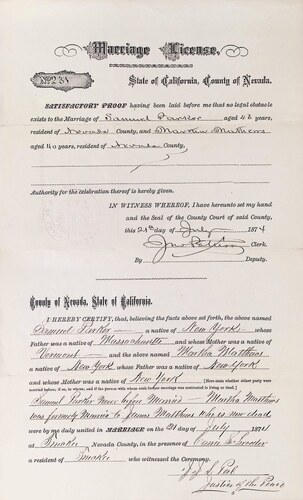 Marriage License.
No. 231
State of California, County of Nevada.
SATISFACTORY PROOF having been laid before me that no legal obstacle
exists to the Marriage of Samuel Parker aged 42 years,
resident of Nevada County, and Martha Mathews
aged 40 years, resident of Nevada County,
Authority for the celebration thereof is hereby given.
IN WITNESS WHEREOF, I have hereunto set my hand
and the Seal of the County Court of said County,
this 21st day of July 1874
Clerk
By Deputy.
County of Nevada, State of California.
I HEREBY CERTIFY, that, believing the facts above set forth, the above named
Samuel Parker a native of New York whose
Father was a native of Massachusetts and whose Mother was a native of
Vermont and the above named Martha Matthews
a native of New York whose Father was a native of New York
and whose Mother was a native of New York
Samuel Parker never before Married - Martha Matthews
was formerly Married to James Matthews who is now dead
were by me duly united in MARRIAGE on the 21 day of July 1874
at Truckee Nevada County, in the presence of
a resident of Truckee who witnessed the Ceremony.
Justice of the Peace